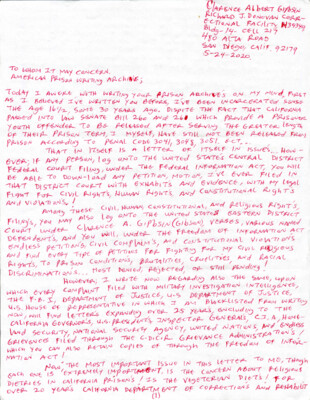 Clarence Albert Gipbson
Richard J. Donovan Corr-
ectional Facility
Bldg-14. Cell 217
480 Alta Road
San Diego Calif 92179
5-24-2020
To whom it may concern.
American Prison Writing Archive;
Today I awoke with writing your prison archives on my mind, first
as I believe I've written you before, I've been incarcerated since
the age 16½ some 30 years ago. Despite the fact that California
passed into law Senate Bill 260 and 261 which provide a prisoner
youth offender to be released after serving the greater length
of their prison term, I myself, have still not been released from
prison according to Penal Code 3041, 3051, ect,.
That in itself is a letter of itself in issues... How-
ever, if any person, log onto the United States Central District
Federal Court filing, under the Federal Information Act, you will
be able to download any petition, motion, I've ever filed in
that District Court with exhibits and evidence, with my legal
fight for civil rights, human rights, and constitutional rights
and violations!
Among these civil, human, constitutional, and religious rights,
filings, you may also log onto the United States Eastern District
Court under Clarence A. Gipbson (Gibson) verses, various named
Dependents, and you will, under the Freedom of Information Act
endless petitions, civil complaints, and constitutional violations
and find every type of petitions for fighting for my civil religious
rights to prison conditions, brutalities, cruelties, and racial
discriminations... most denied, rejected or still pending!
However, I write now regarding also the same, upon
which every complaint filed with military investigation intelligence
the F.B.I, Department of Justice, U.S. Department of Justice,
U.S. House of Representative in which I am blacklisted from writing
now, will find letters expanding over 25 years, including to the
California Governors, his President's Inspector General, C.I.A Home-
land Security, National Security Agency, United Nations, and endless
grievances filed through the C.D.C.R. grievance administration's
which you can also retain copies of through the Freedom of Infor-
mation Act!
Now, the most important issue in this letter to me, though
each one is extremely important is the concern about religious
dietries in California prisons! is the vegetarian diets! for
over 20 years California Department of Corrections and Rehabilit
(1)